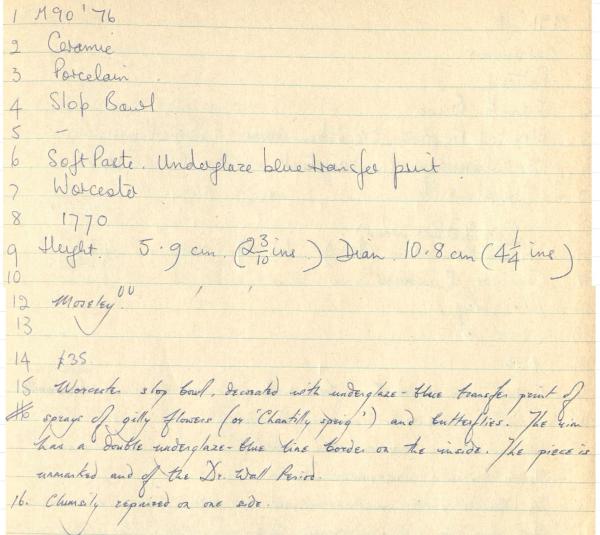 1 M90 '76
2 Ceramic
3 Porcelain
4 Slop Bowl
5 -
6 Soft Paste. Underglaze blue transfer print
7 Worcester
8 1770
9 Height. 5.9 cm. (2 3/10 ins.) Diam 10.8 cm (4 1/4 ins)
10
12 Moseley.
13
14 £35
15 Worcester slop bowl, decorated with underglaze-blue transfer print of
sprays of gilly flowers (or 'Chantilly sprig') and butterflies. The rim
has a double underglaze-blue line border on the inside. The piece is
unmarked and of the Dr. Wall Period.
16. Clumsily repaired on one side.